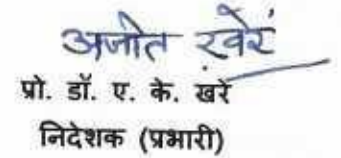 अजीत खरे
प्रो. डॉ. ए. के. खरे
निदेशक (प्रभारी)